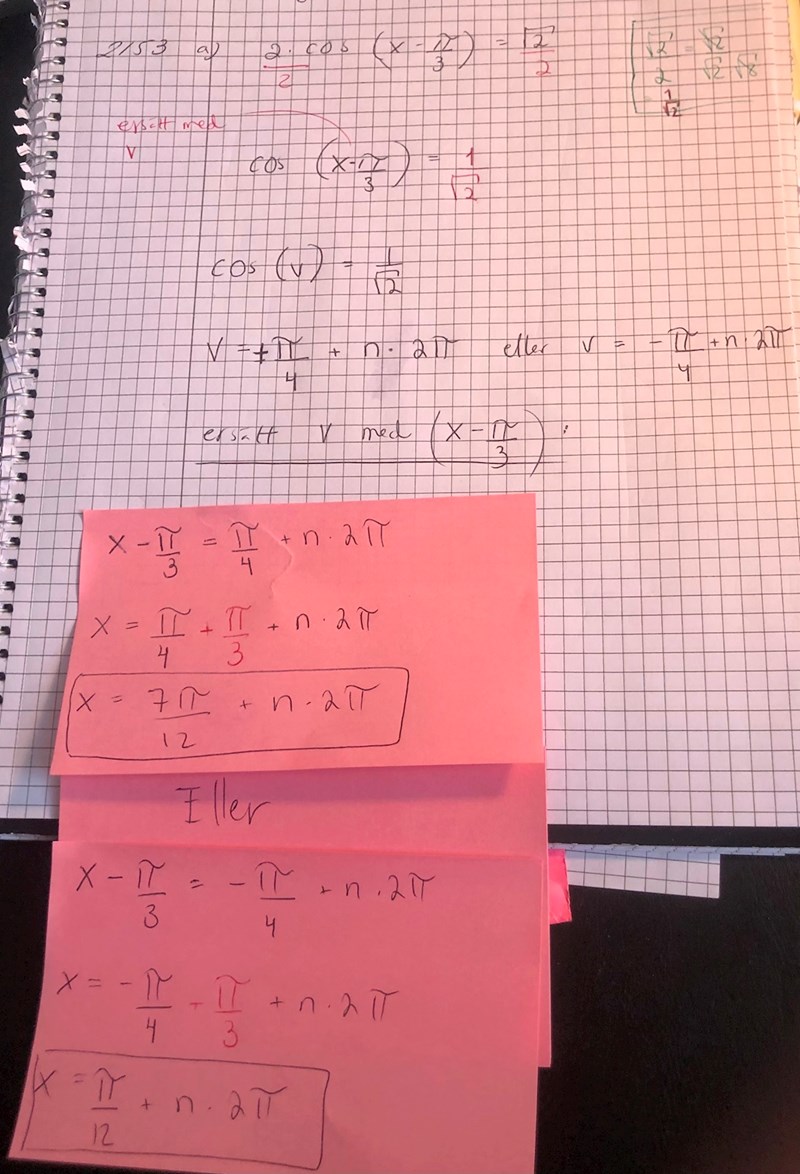 2153 a) 2·cos (x - π/3) = √2
2 2
√2/2 = √2/(√2 √2)
1/√2
ersätt med
v
cos (x-π/3) = 1/√2
cos (v) = 1/√2
V = +π/4 + n· 2π eller v = -π/4 + n· 2π
ersätt V med (x - π/3) :
x - π/3 = π/4 + n· 2π
x = π/4 + π/3 + n· 2π
x = 7π/12 + n· 2π
Eller
x - π/3 = - π/4 + n· 2π
x = - π/4 + π/3 + n· 2π
x = π/12 + n· 2π